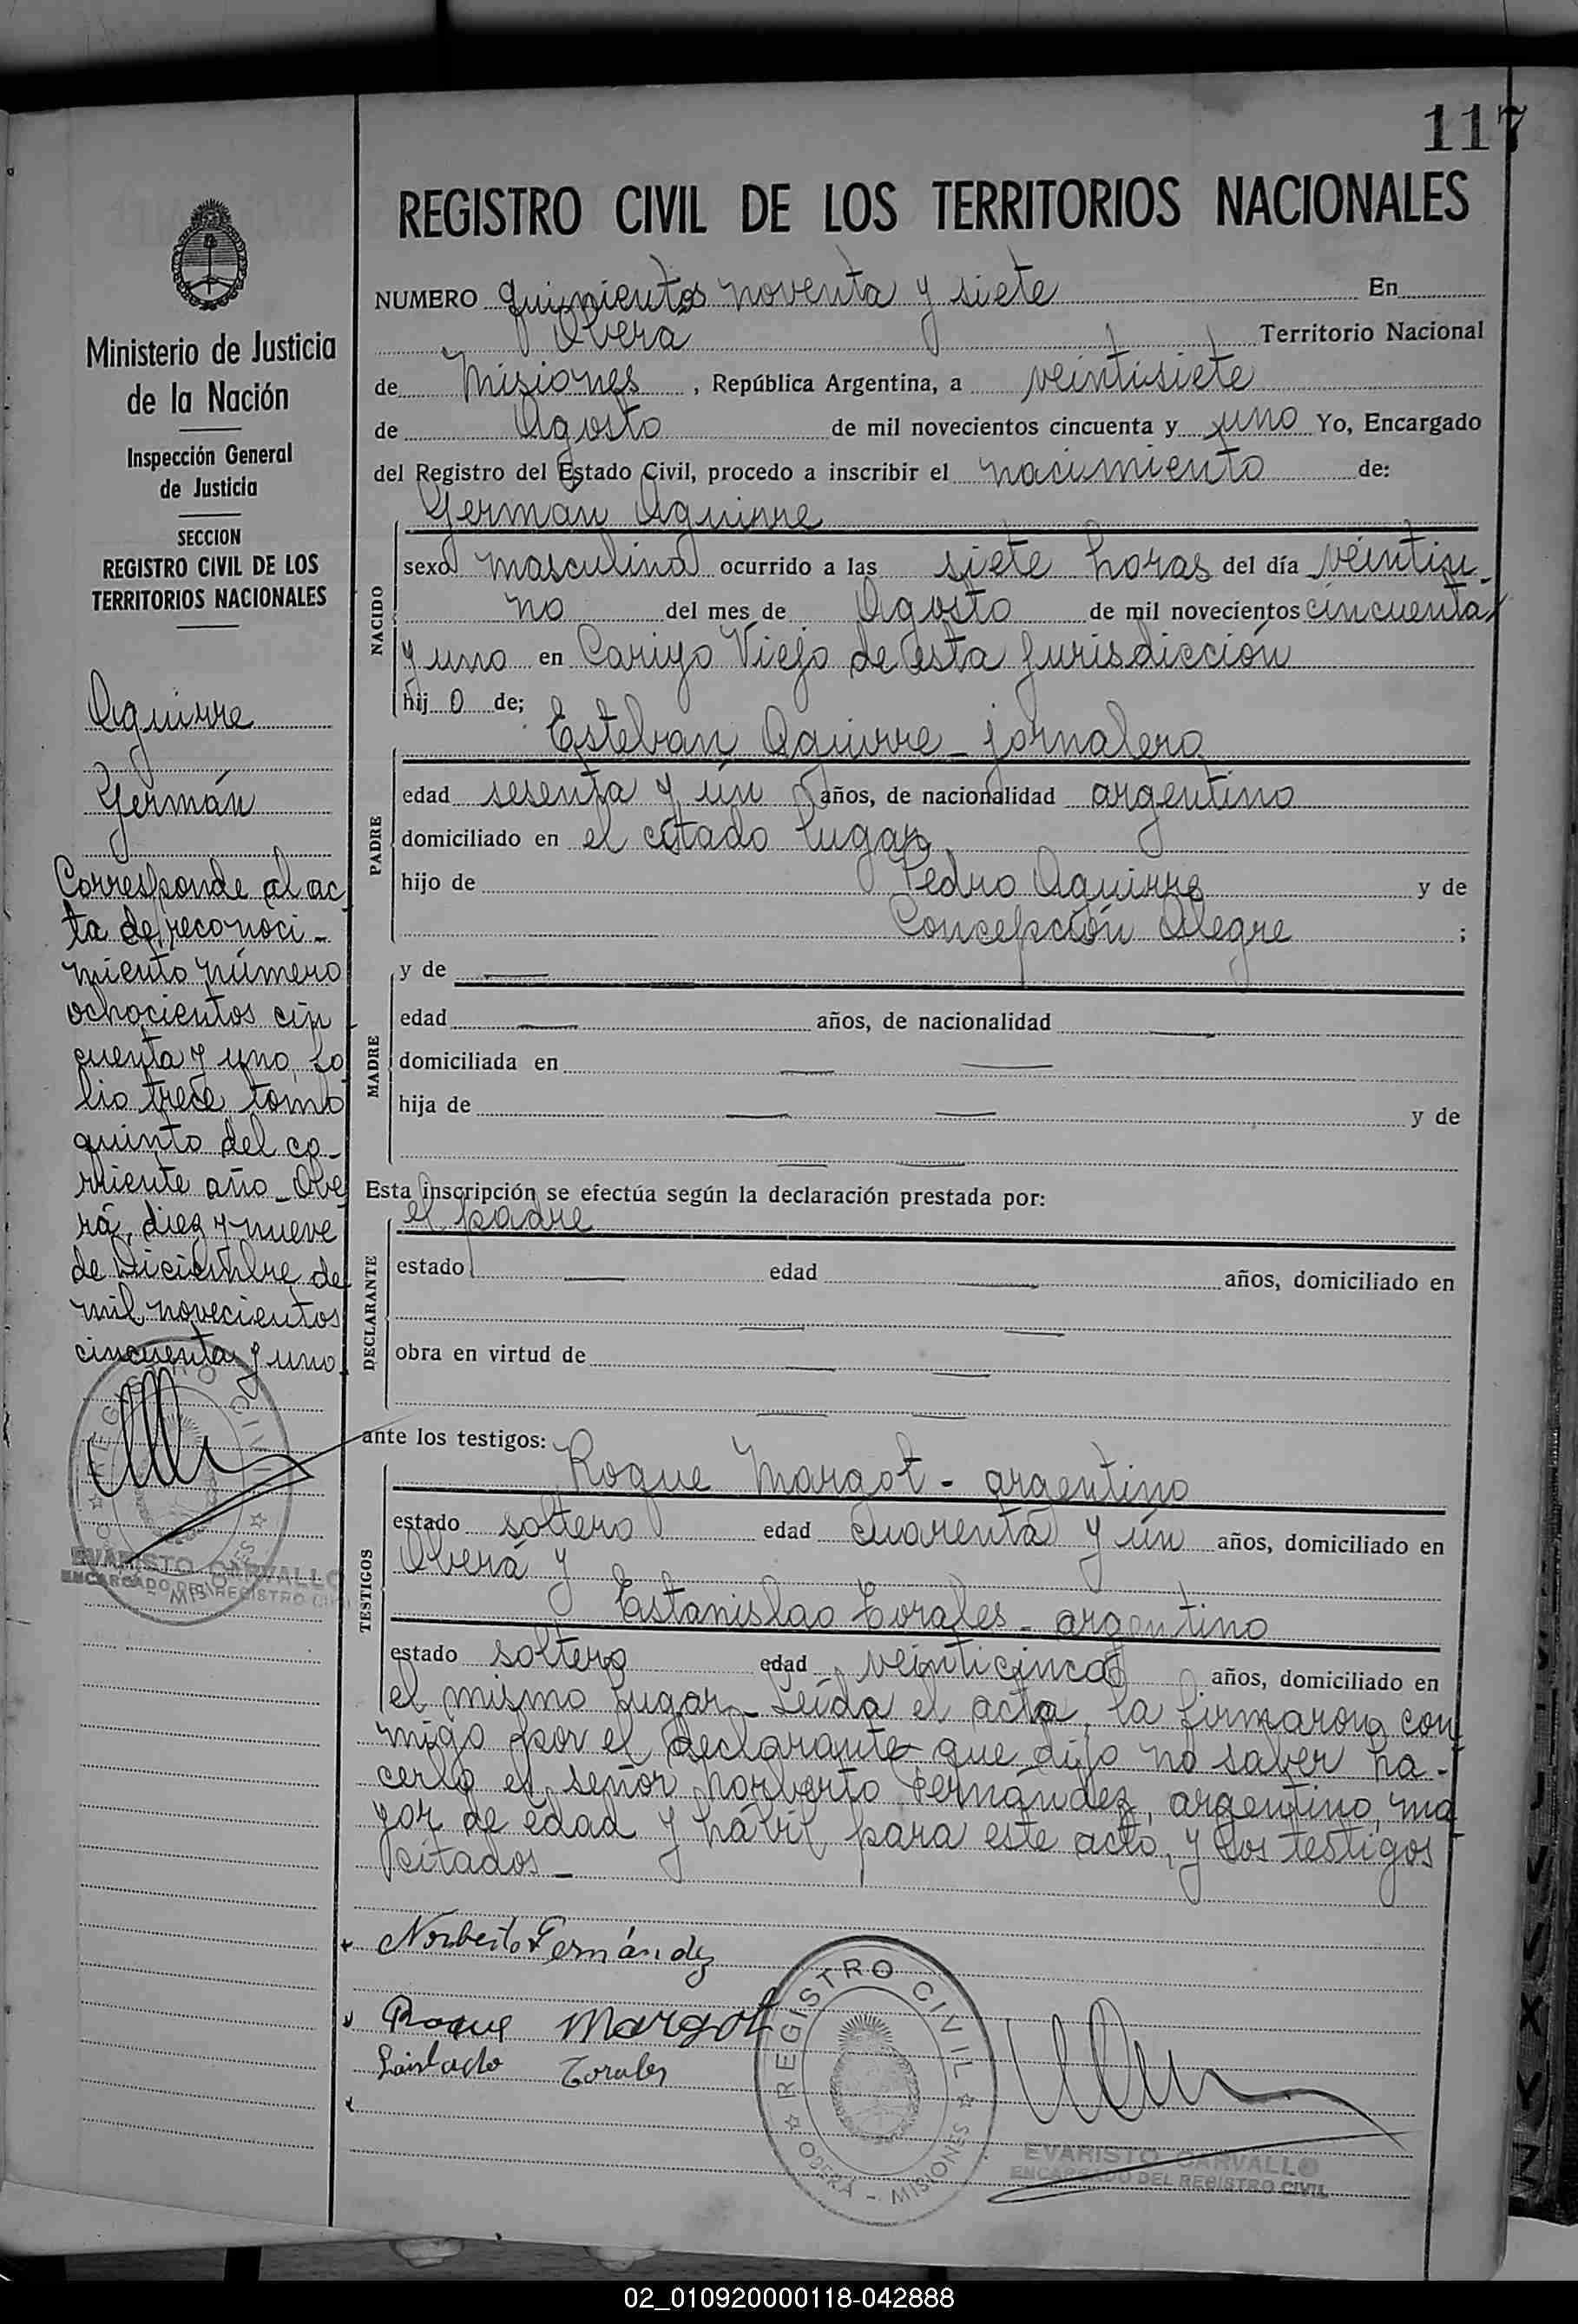 117
REGISTRO CIVIL DE LOS TERRITORIOS NACIONALES
NUMERO quinientos noventa y siete En
Oberá Territorio Nacional
de Misiones, República Argentina, a veintisiete
de Agosto de mil novecientos cincuenta y uno Yo, Encargado
del Registro del Estado Civil, procedo a inscribir el nacimiento de:
Germán Aguirre
NACIDO
sexo masculino ocurrido a las siete horas del día veintiu-
no del mes de Agosto de mil novecientos cincuenta
y uno en Viejo de esta jurisdicción
hijo de;
PADRE
Esteban Aguirre - jornalero
edad sesenta y ún años, de nacionalidad argentino
domiciliado en el citado lugar
hijo de Pedro Aguirre y de
Concepción Alegre ;
MADRE
y de —
edad — años, de nacionalidad —
domiciliada en — —
hija de — — y de
— —
Esta inscripción se efectúa según la declaración prestada por:
DECLARANTE
el padre
estado — edad — años, domiciliado en
— —
obra en virtud de — —
— —
ante los testigos:
TESTIGOS
Roque Margot - argentino
estado soltero edad cuarenta y ún años, domiciliado en
Oberá y
Estanislao Torales - argentino
estado soltero edad veinticinco años, domiciliado en
el mismo lugar - Leída el acta, la firmaron con
migo por el declarante que dijo no saber ha-
cerlo el señor Norberto Fernández, argentino, ma
yor de edad y hábil para este acto, y los testigos
citados -
Norberto Fernández
Roque Margot
Torales
REGISTRO CIVIL
OBERÁ - MISIONES
EVARISTO CARVALLO
ENCARGADO DEL REGISTRO CIVIL
Ministerio de Justicia
de la Nación
Inspección General
de Justicia
SECCION
REGISTRO CIVIL DE LOS
TERRITORIOS NACIONALES
Aguirre
Germán
Corresponde al ac
ta de reconoci-
miento número
ochocientos cin
cuenta y uno, fo
lio trece tomo
quinto del co-
rriente año - Obe
rá, diez y nueve
de Diciembre de
mil novecientos
cincuenta y uno
REGISTRO CIVIL
MISIONES
EVARISTO CARVALLO
ENCARGADO DEL REGISTRO CIVIL
02_010920000118-042888